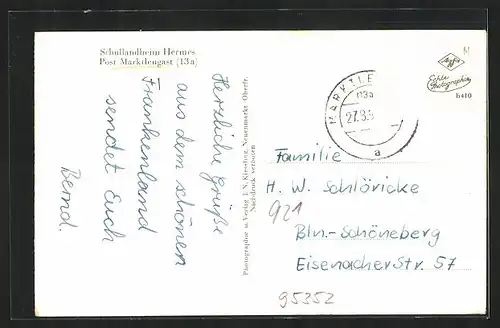 Schullandheim Hermes
Post Marktleugast (13a)
Herzliche Grüße
aus dem schönen
Frankenland
sendet Euch
Bernd.
Photographie u. Verlag J. N. Kiessling, Neuenmarkt Oberfr.
Nachdruck verboten
MARKTLE
13a
27.8.5
a
Agfa
Echte
Photographie
b410
Familie
H. W. Schlöricke
921
Bln.-Schöneberg
Eisenacher Str. 57
95352